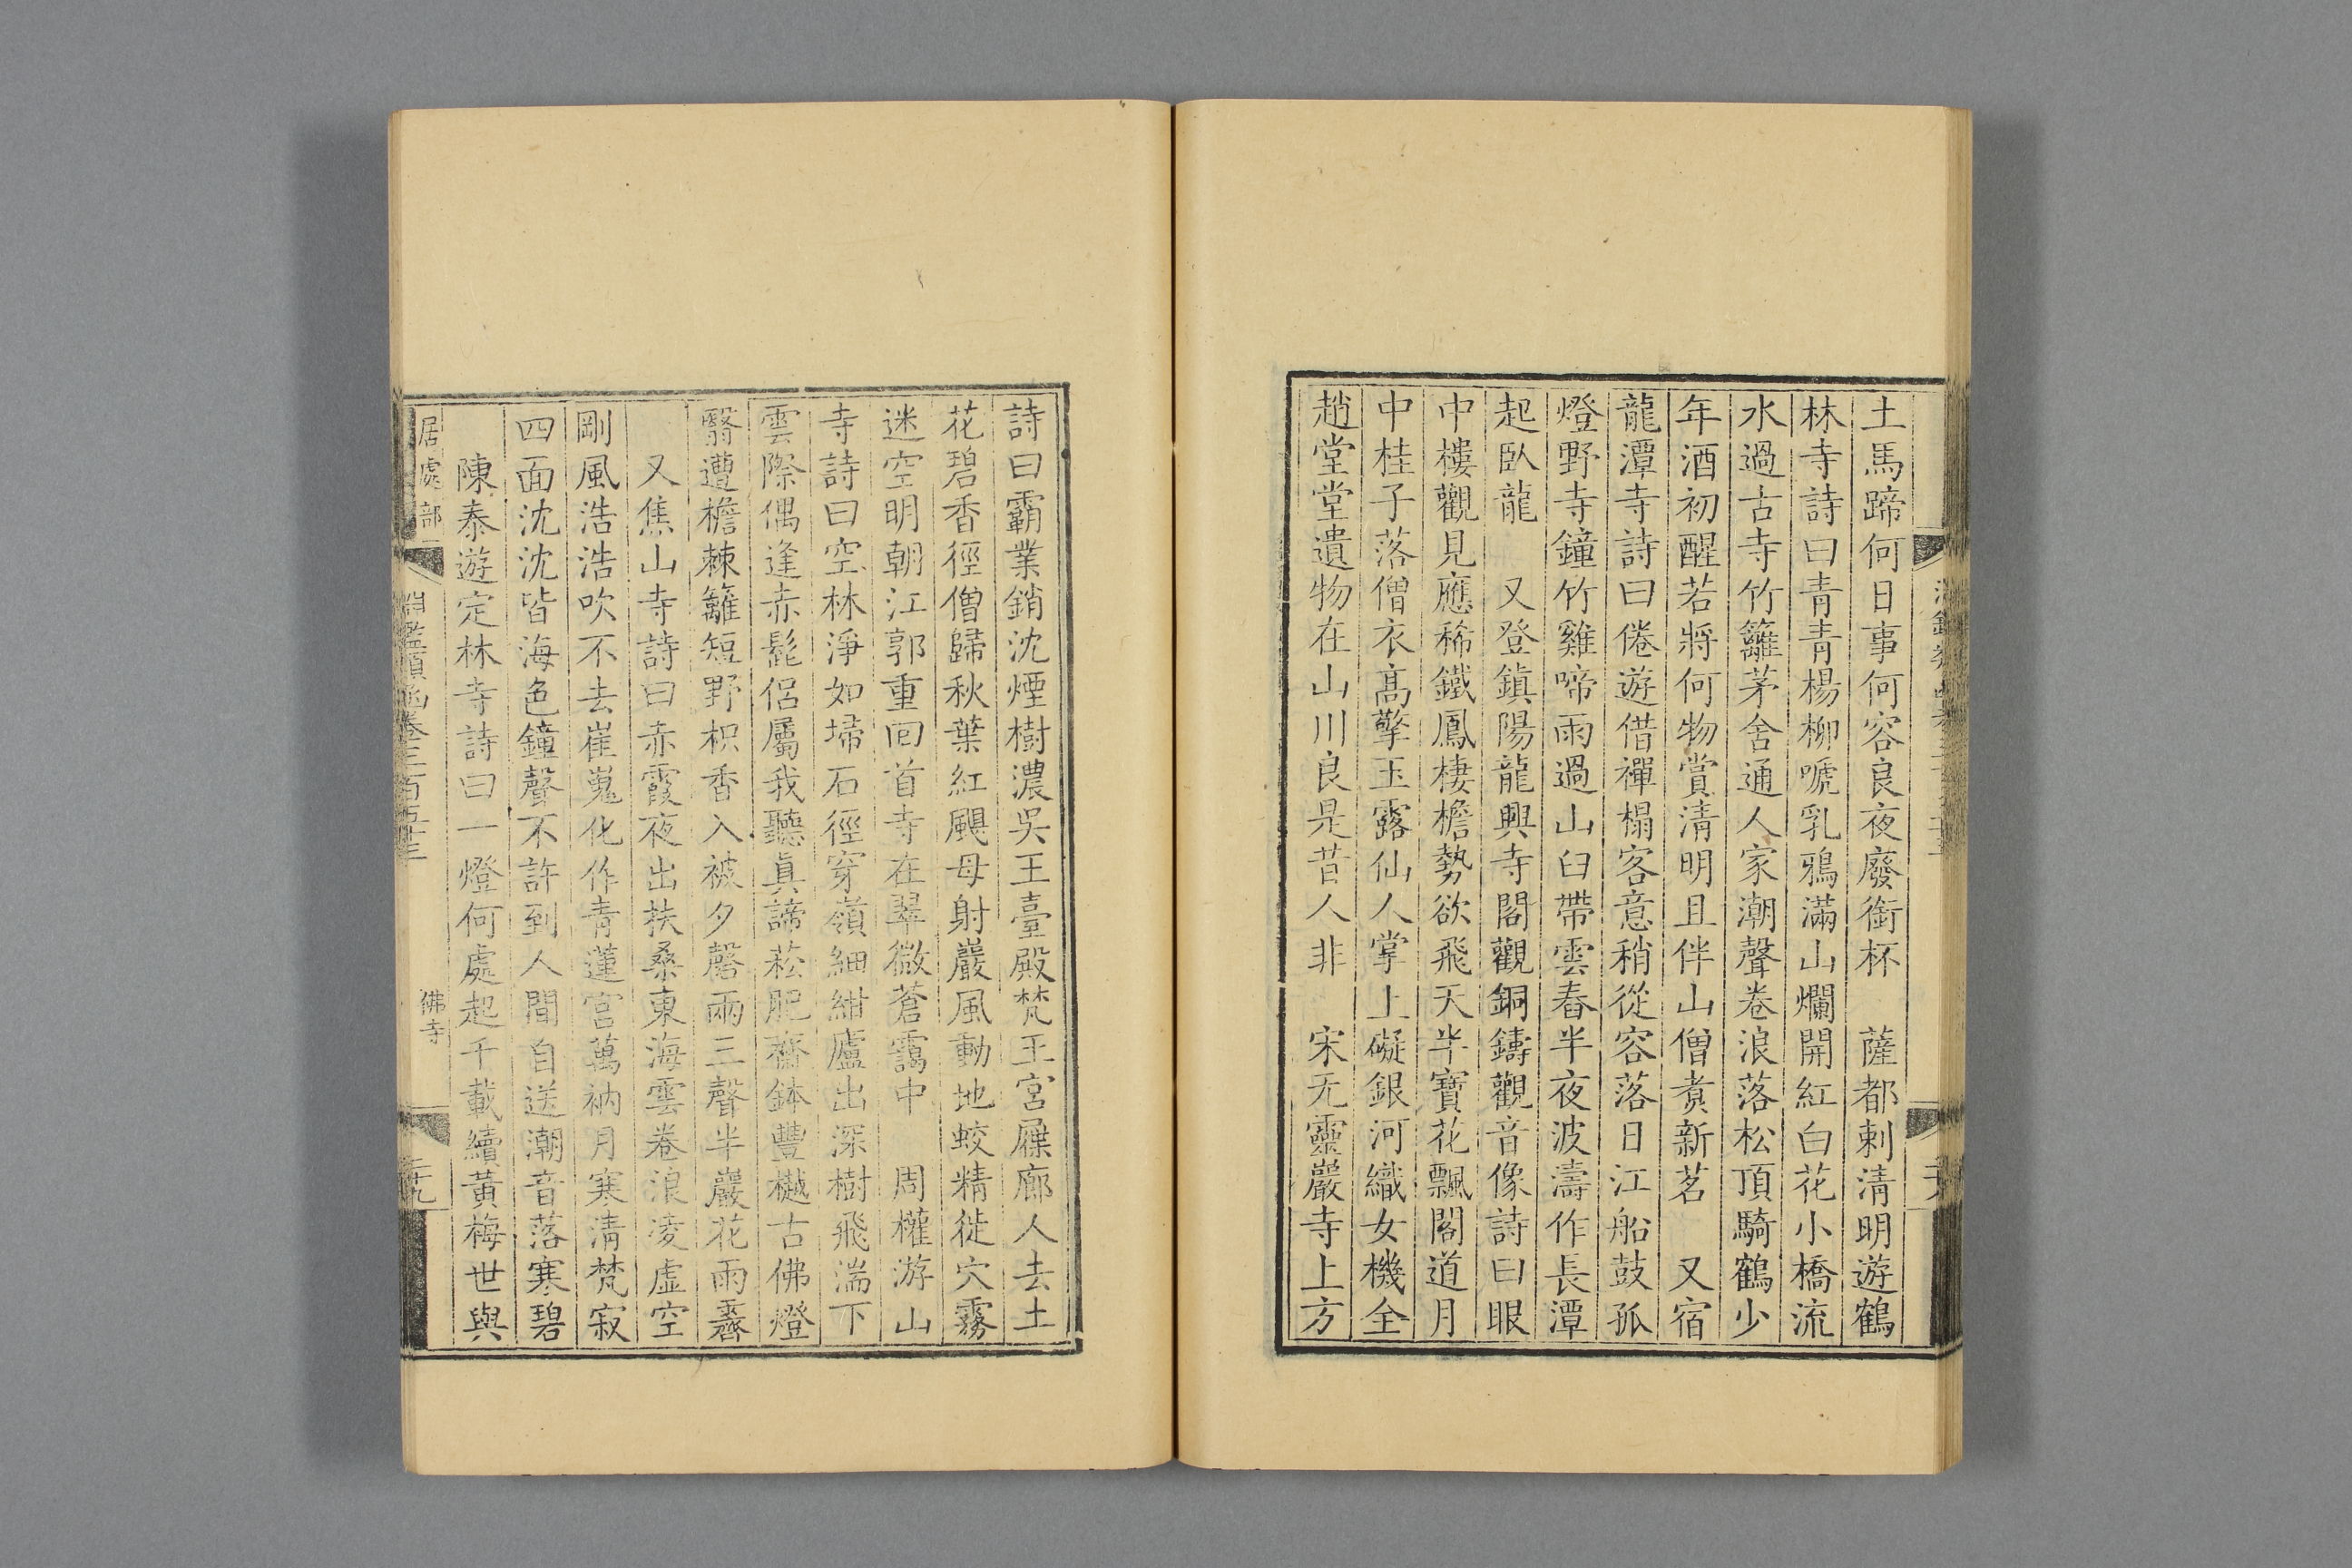 土馬蹄何日事何容良夜廢銜杯　薩都刺清明遊鶴
林寺詩曰青青楊柳嗁乳鴉滿山爛開紅白花小橋流
水過古寺竹籬茅舍通人家潮聲卷浪落松頂騎鶴少
年酒初醒若將何物賞清明且伴山僧煑新茗　又宿
龍潭寺詩曰倦遊借禪榻客意稍從容落日江船鼓孤
燈野寺鐘竹雞啼雨過山臼帶雲舂半夜波濤作長潭
起臥龍　又登鎮陽龍興寺閣觀銅鑄觀音像詩曰眼
中樓觀見應稀鐵鳳棲檐勢欲飛天半寶花飄閣道月
中桂子落僧衣髙擎玉露仙人掌上礙銀河織女機全
趙堂堂遺物在山川良是昔人非　宋无靈巖寺上方
詩曰霸業銷沈煙樹濃吳王臺殿梵王宮屧廊人去土
花碧香徑僧歸秋葉紅颶母射巖風動地蛟精徙穴霧
迷空明朝江郭重回首寺在翠微蒼靄中　周權游山
寺詩曰空林淨如埽石徑穿嶺細紺廬出深樹飛湍下
雲際偶逢赤髭侶屬我聽真諦菘肥齋鉢豐樾古佛燈
翳遭檐棘籬短野枳香入被夕磬兩三聲半巖花雨霽
又焦山寺詩曰赤霞夜出扶桑東海雲卷浪凌虛空
剛風浩浩吹不去崔嵬化作青蓮宮萬衲月寒清梵寂
四面沈沈皆海色鐘聲不許到人間自送潮音落寒碧
陳泰遊定林寺詩曰一燈何處起千載續黃梅世與
居處部
淵鑑類函卷三百五十三
佛寺
二十九